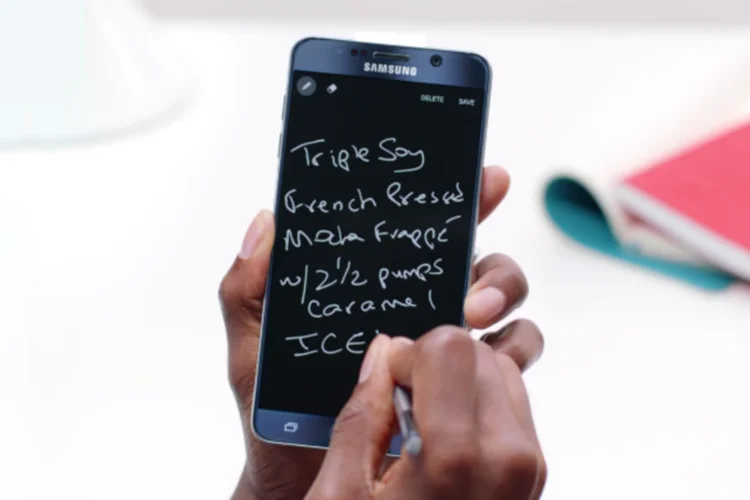 SAMSUNG
DELETE SAVE
Triple Soy
French Pressed
Mocha Frappé
w/2 1/2 pumps
Caramel
ICE